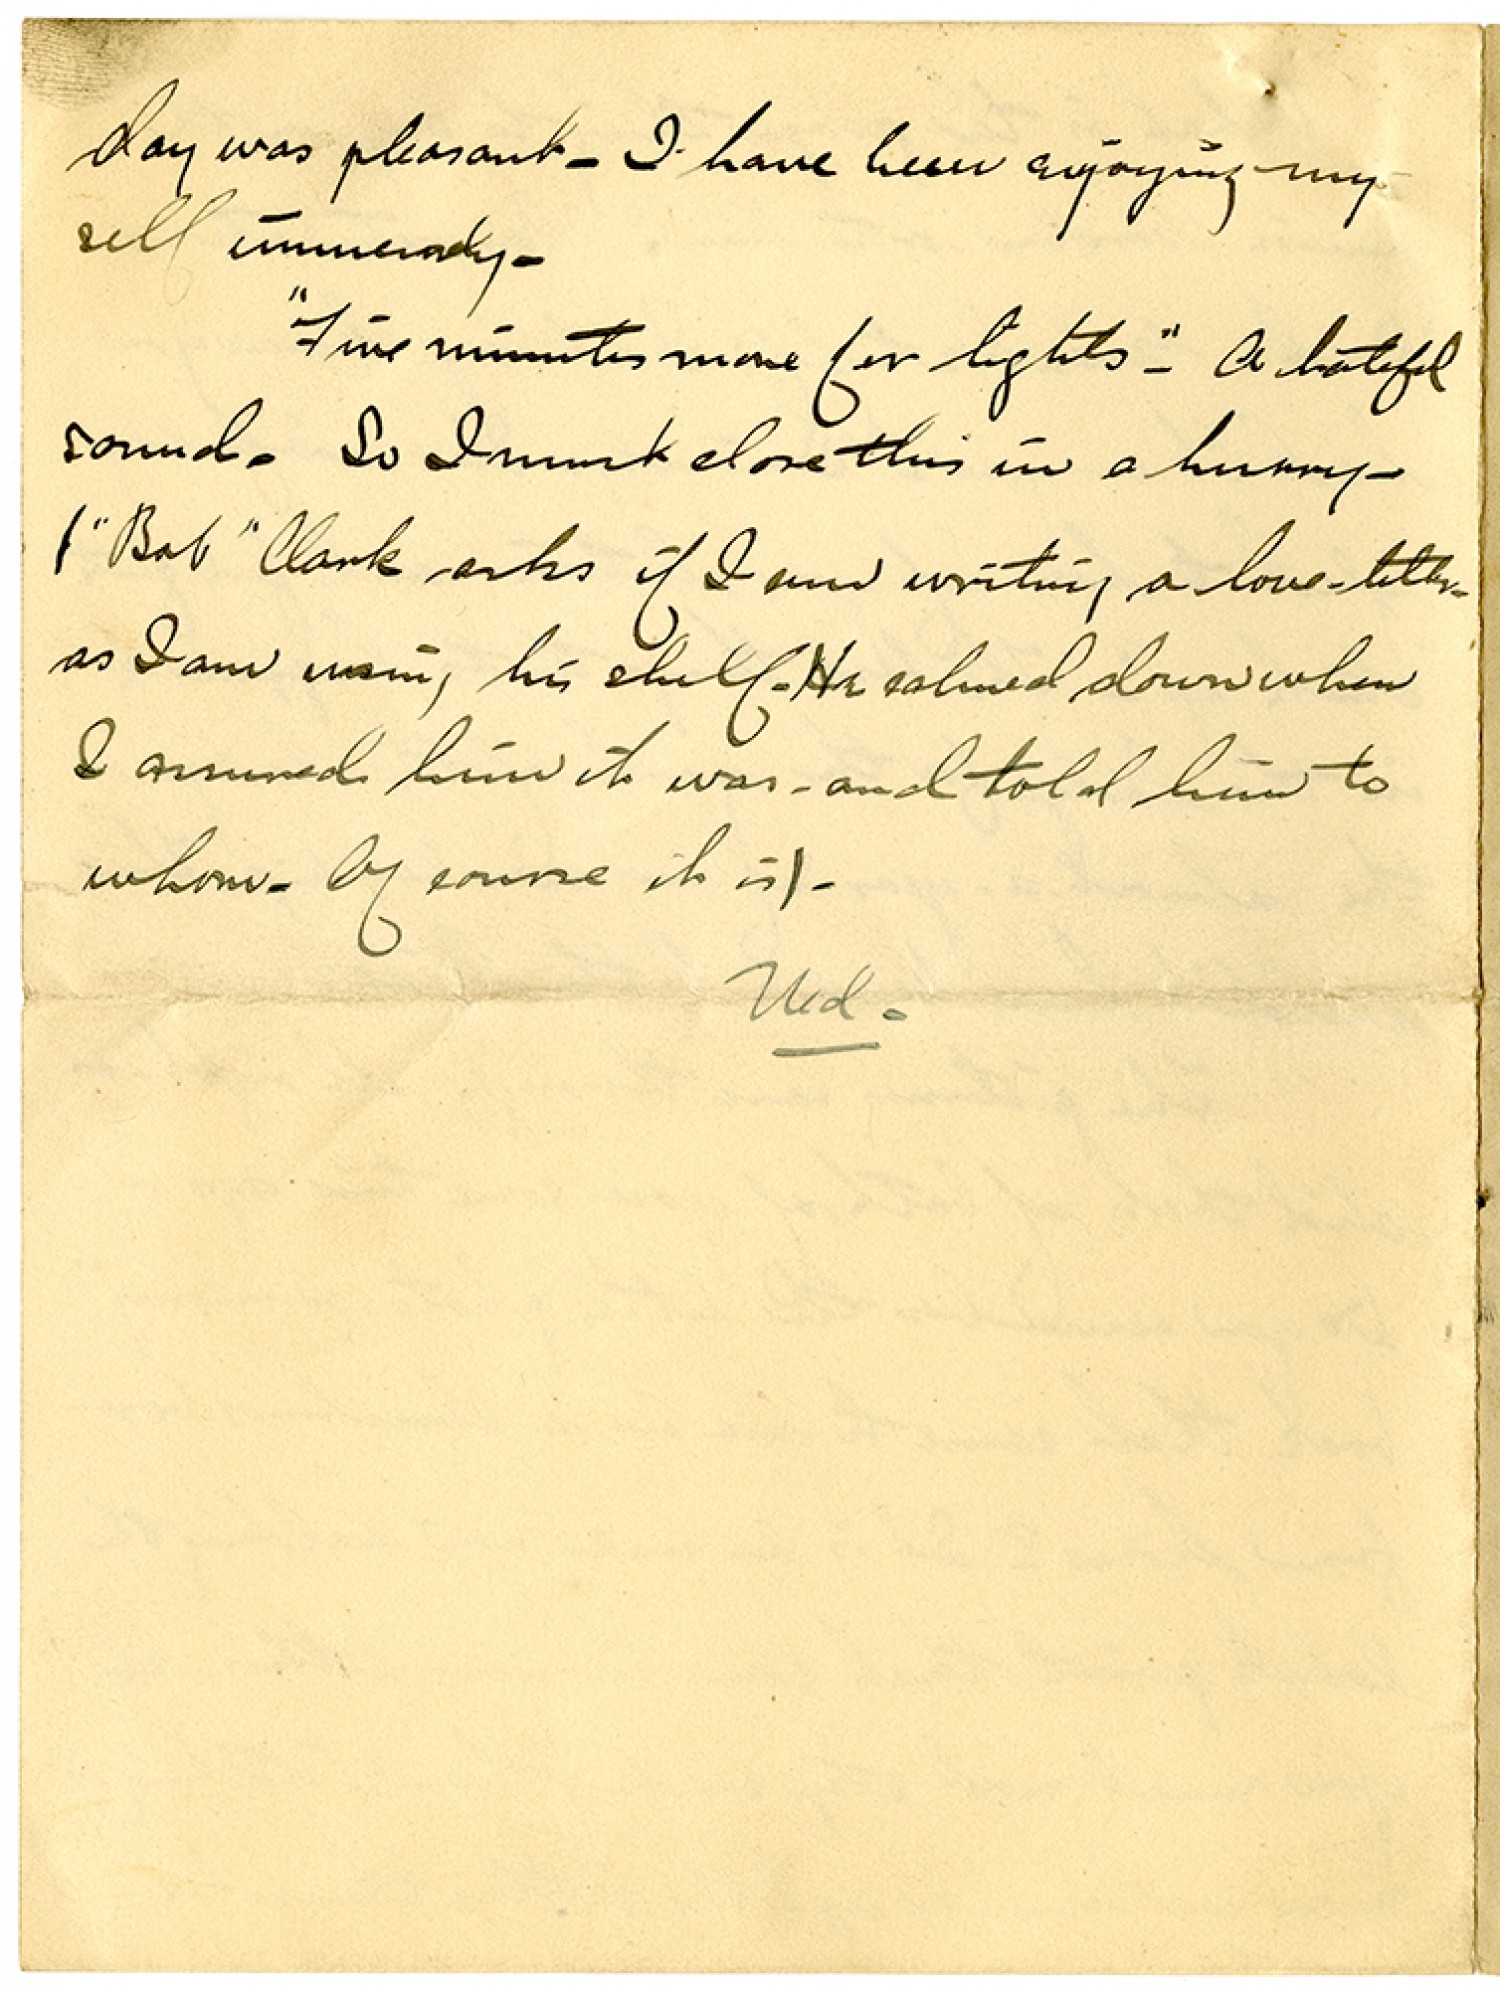 day was pleasant - I have been enjoying my
self immensely -
"Five minutes more for lights" - A hateful
sound - So I must close this in a hurry -
("Bob" Clark asks if I am writing a love-letter -
as I am using his shelf - He calmed down when
I assured him it was - and told him to
whom - Of course it is) -
Ned -